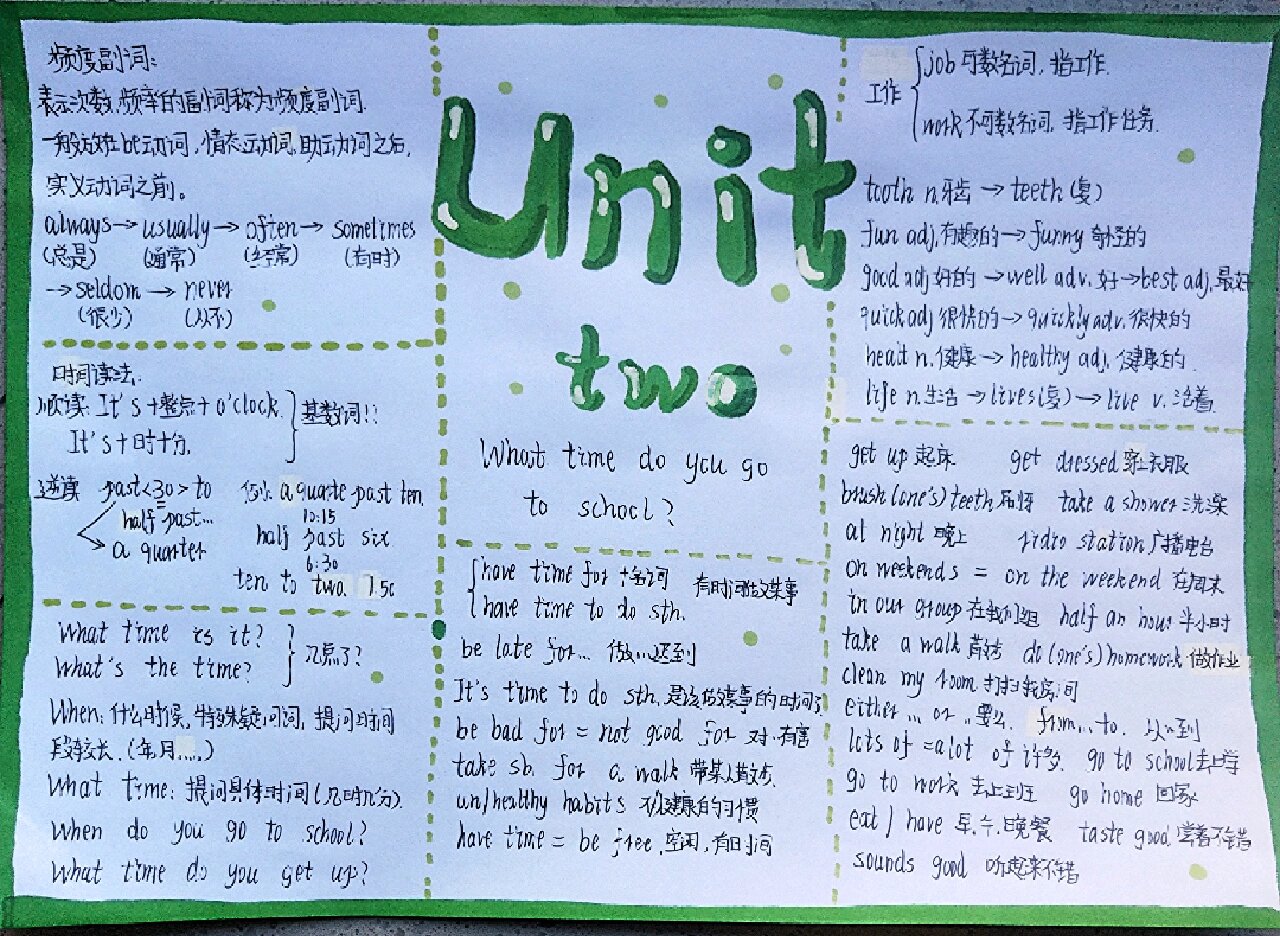 频度副词:
表示次数,频率的副词称为频度副词.
一般放在be动词,情态动词,助动词之后,
实义动词之前。
always→usually→often→sometimes
(总是) (通常) (经常) (有时)
→seldom→never
(很少) (从不)
时间读法:
顺读: It's+整点+o'clock.
It's+时+分.
基数词!!
逆读 past<30>to 例: a quarte past ten.
half past... 10:15
a quarter half past six
6:30
ten to two. 1.50
What time is it?
What's the time?
几点了?
When: 什么时候,特殊疑问词,提问时间
段较长.(年月.....)
What time: 提问具体时间(几时几分).
When do you go to school?
What time do you get up?
Unit
two
What time do you go
to school?
have time for +名词
have time to do sth.
有时间做某事
be late for... 做...迟到
It's time to do sth.是该做某事的时间了
be bad for = not good for 对..有害
take sb. for a walk 带某人散步.
un/healthy habits 不/健康的习惯
have time = be free.空闲,有时间
工作
job可数名词,指工作.
work不可数名词,指工作任务.
tooth n.牙齿→teeth(复)
fun adj.有趣的→funny 奇怪的
good adj好的→well adv.好→best adj.最好
quick adj 很快的→quickly adv.很快的
heait n.健康→healthy adj.健康的.
life n.生活→lives(复)→live v.活着.
get up 起床 get dressed 穿衣服
brush(one's)teeth 刷牙 take a shower 洗澡
at night 晚上 ridio station 广播电台
on weekends = on the weekend 在周末
in our group 在我们组 half an hour 半小时
take a walk 散步 do(one's)homework 做作业
clean my room 打扫我房间
either... or ..要么. from...to. 从..到
lots of =alot of 许多. go to school去上学
go to work 去上班 go home 回家
eat/have 早.午.晚餐 taste good 尝着不错
sounds good 听起来不错